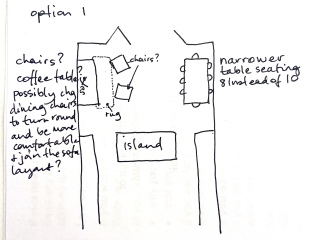 option 1
chairs?
coffee table?
possibly chg
dining chairs
to turn round
and be more
comfortable
& join the sofa
layout?
sofa
chairs?
rug
island
narrower
table seating
8 instead of 10